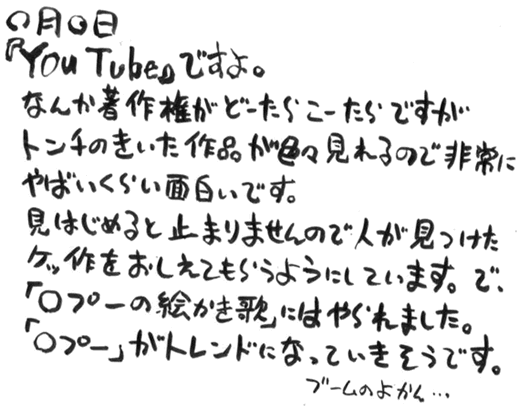 ○月○日
『YouTube』ですよ。
なんか著作権がどーたらこーたらですが
トンチのきいた作品が色々見れるので非常に
やばいくらい面白いです。
見はじめると止まりませんので人が見つけた
ケッ作をおしえてもらうようにしています。で、
「○プーの絵かき歌」にはやられました。
「○プー」がトレンドになっていきそうです。
ブームのよかん…